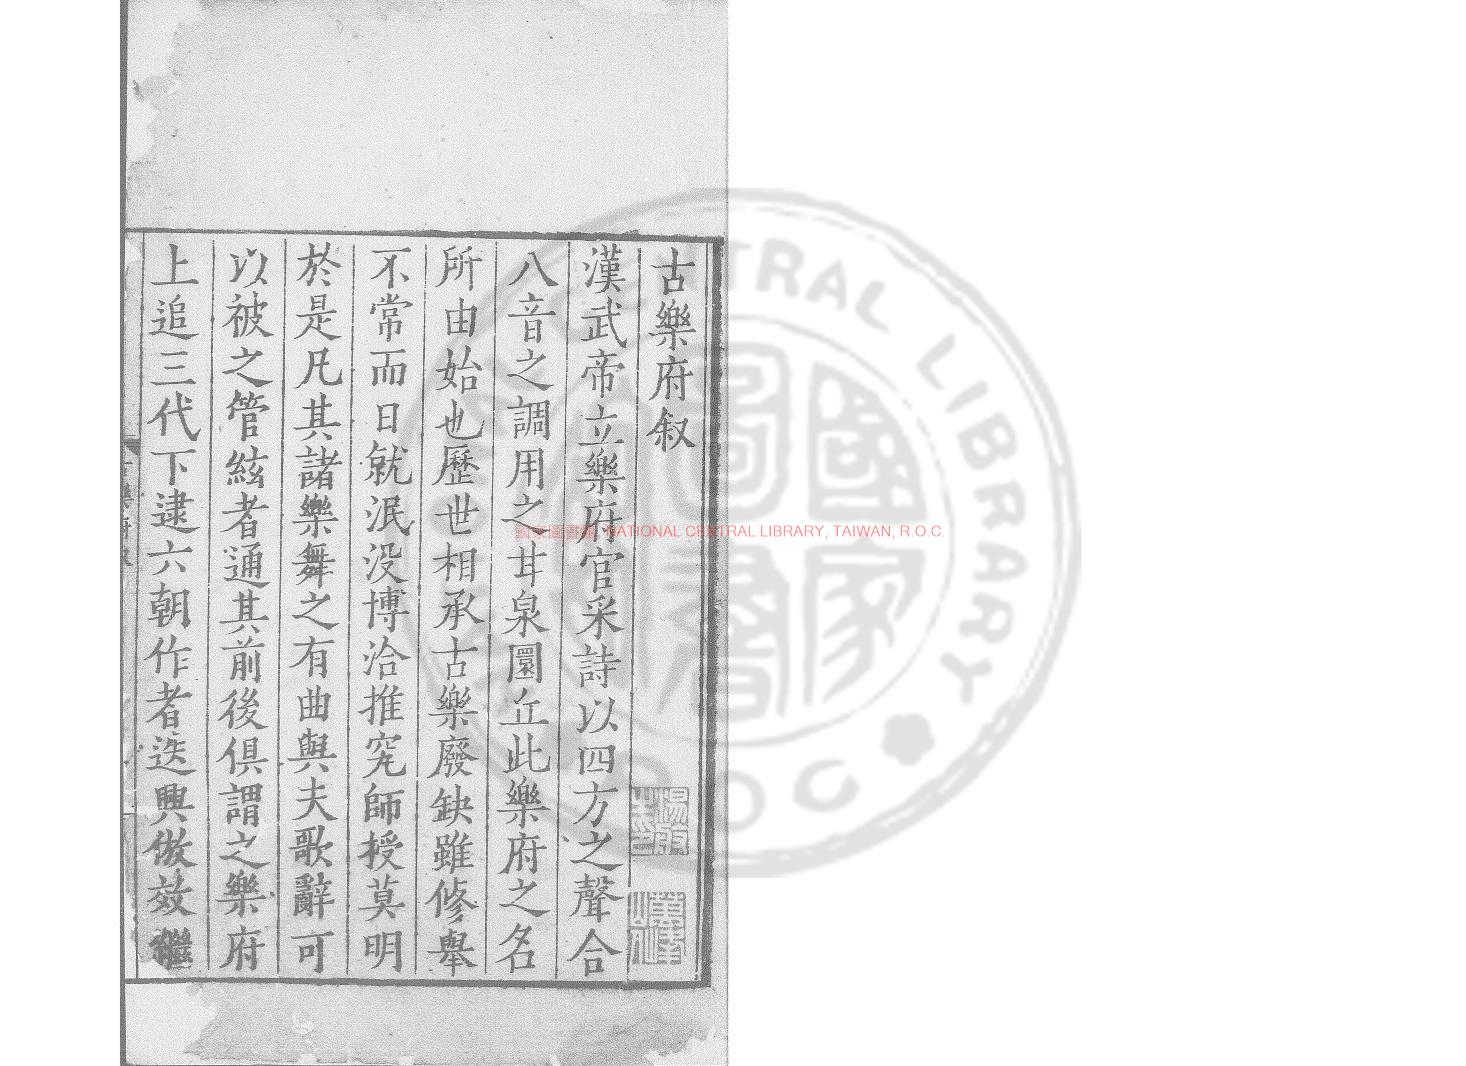 古樂府叙
漢武帝立樂府官采詩以四方之聲合
八音之調用之甘泉圜丘此樂府之名
所由始也歷世相承古樂廢缺雖修舉
不常而日就泯没博洽推究師授莫明
於是凡其諸樂舞之有曲與夫歌辭可
以被之管絃者通其前後俱謂之樂府
上追三代下逮六朝作者迭興倣效繼
國家圖書館, NATIONAL CENTRAL LIBRARY, TAIWAN, R.O.C.